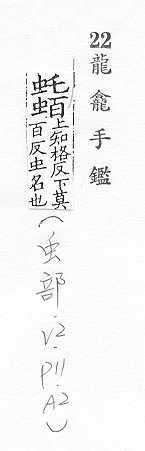 22 龍龕手鑑
虴蛨上知格反下莫
百反虫名也
(虫部.V2.P11.A2)